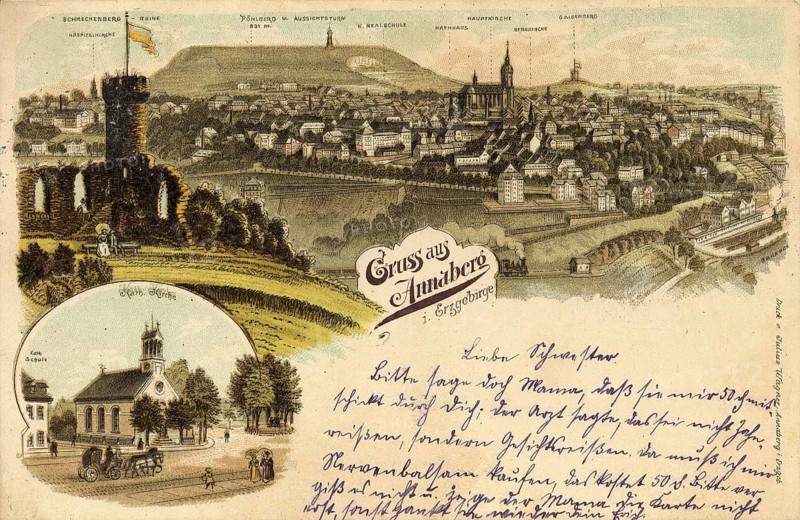 SCHRECKENBERG RUINE
HOSPITALKIRCHE
PÖHLBERG M. AUSSICHTSTURM
831 m.
K. REALSCHULE
RATHHAUS
HAUPTKIRCHE
BERGKIRCHE
GALGENBERG
BAHNHOF
Gruss aus
Annaberg
i. Erzgebirge
Kath. Kirche
Kath.
Schule
Druck v. Julius Wagner, Annaberg i. Erzgb.
Liebe Schwester
Bitte sage doch Mama, daß sie mir 50 ch mit
schickt durch Dich; der Arzt sagte, das sei nicht Zahn-
reißen, sondern Gesichtsreißen. Da muß ich mir
Nervenbalsam kaufen, das kostet 50 ch. Bitte ver
giß es nicht u. zeige der Mama die Karte nicht
erst, sonst zankt sie wieder dein